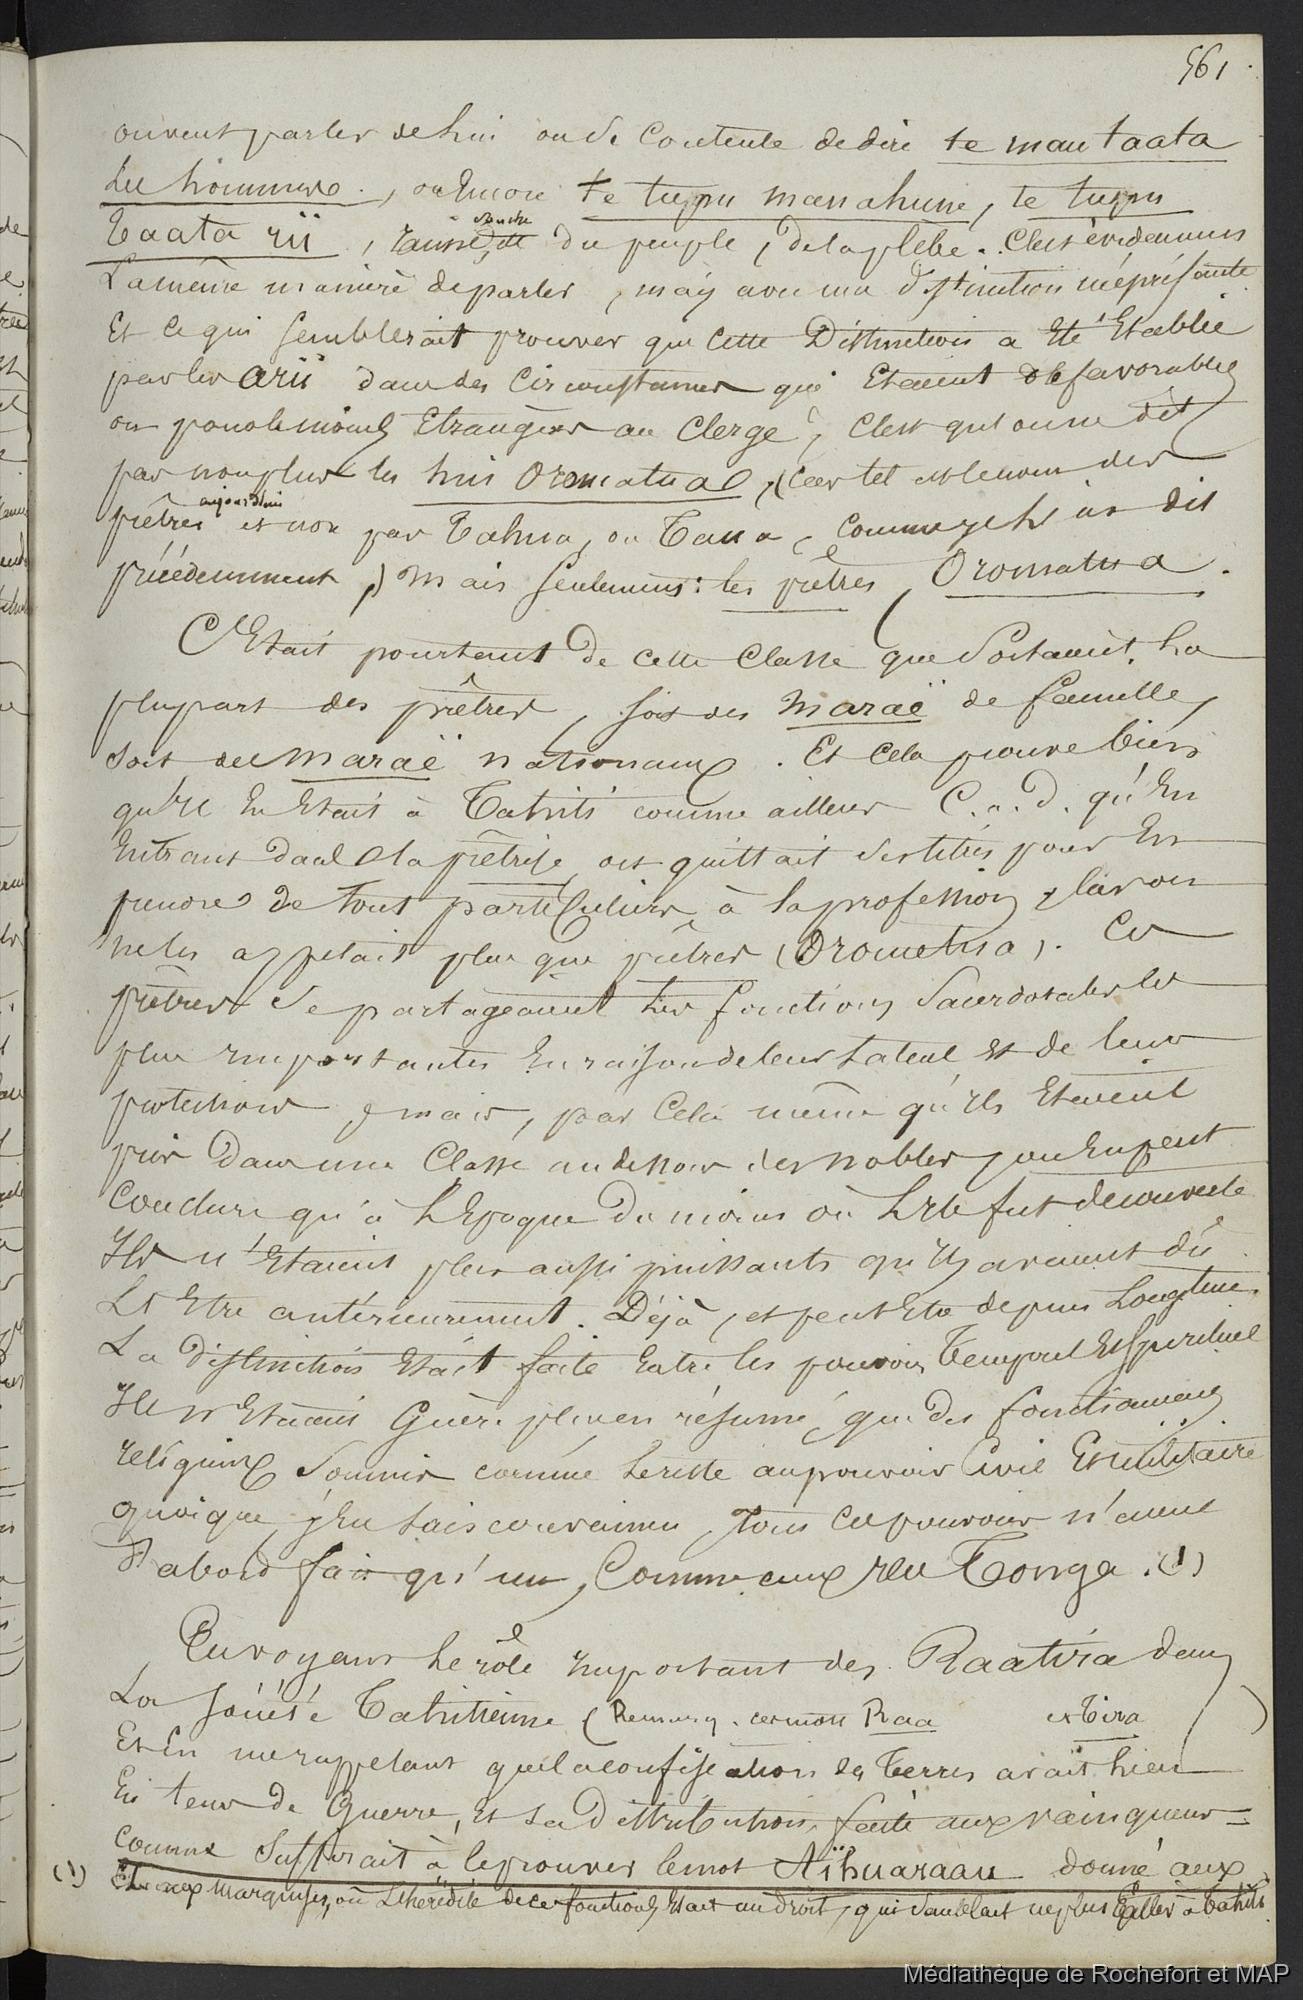 561
on veut parler de lui on se contente de dire te mau taata
les hommes, ou encore te tupu manahune, te tupu
taata rii, racine, souche du peuple, de la plèbe. C'est évidemment
la même manière de parler, mais avec une distinction méprisante
Et ce qui semblerait prouver que cette Distinction a été Etablie
par les arii dans des circonstances qui Etaient défavorables
ou pour le moins Etrangères au clergé, c'est qu'on ne dit
pas non plus les hui Oromatua, (car tel est le nom des
prêtres aujourd'hui et non pas Tahua, ou Taua, comme je l'ai dit
précédemment,) mais seulement: les prêtres, Oromatua.
C'Etait pourtant de cette classe que sortaient la
plupart des prêtres, soit des maraë de famille,
soit des maraë nationaux. Et cela prouve bien
qu'il en Etait à Tahiti comme ailleurs C.a.d. qu'En
Entrant dans la prêtrise, on quittait ses titres pour En
prendre de tout particuliers à la profession, car on
ne les appelait plus que prêtres (Oromatua). Ces
prêtres se partageaient les fonctions sacerdotales les
plus importantes En raison de leur talent et de leurs
protections, mais, par cela même qu'ils Etaient
pris dans une classe au dessous des nobles, on En peut
conclure qu'à l'Epoque du moins où l'Ile fut découverte
Ils n'Etaient plus aussi puissants qu'ils avaient dû
l'Etre antérieurement. Déjà, et peut Etre depuis longtems,
La distinction Etait faite Entre les pouvoirs Temporel Et Spirituel
Ils n'Etaient Guère plus en résumé, que des fonctionnaires
religieux soumis comme le reste au pouvoir Civil Et militaire
quoique, j'En sais convaincu, tous ces pouvoirs n'aient
d'abord fait qu'un, comme aux iles Tonga. (1)
En voyant le rôle important des Raatira dans
La Société Tahitienne (Remarq. ces mots Raa et Tira)
Et En me rappelant que la confiscation des Terres avait lieu
En tems de Guerre, Et sa distribution faite aux vainqueurs
comme suffirait à le prouver le mot Aïhuaraau donné aux
(1) Et aux marquises, où L'hérédité de ces fonctions Etait un droit, qui semblait ne plus Exister à Tahiti
Médiathèque de Rochefort et MAP